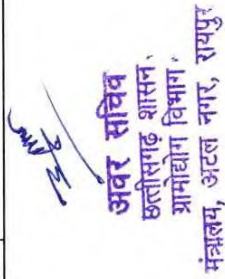 अवर सचिव
छत्तीसगढ़ शासन,
ग्रामोद्योग विभाग,
मंत्रालय, अटल नगर, रायपुर